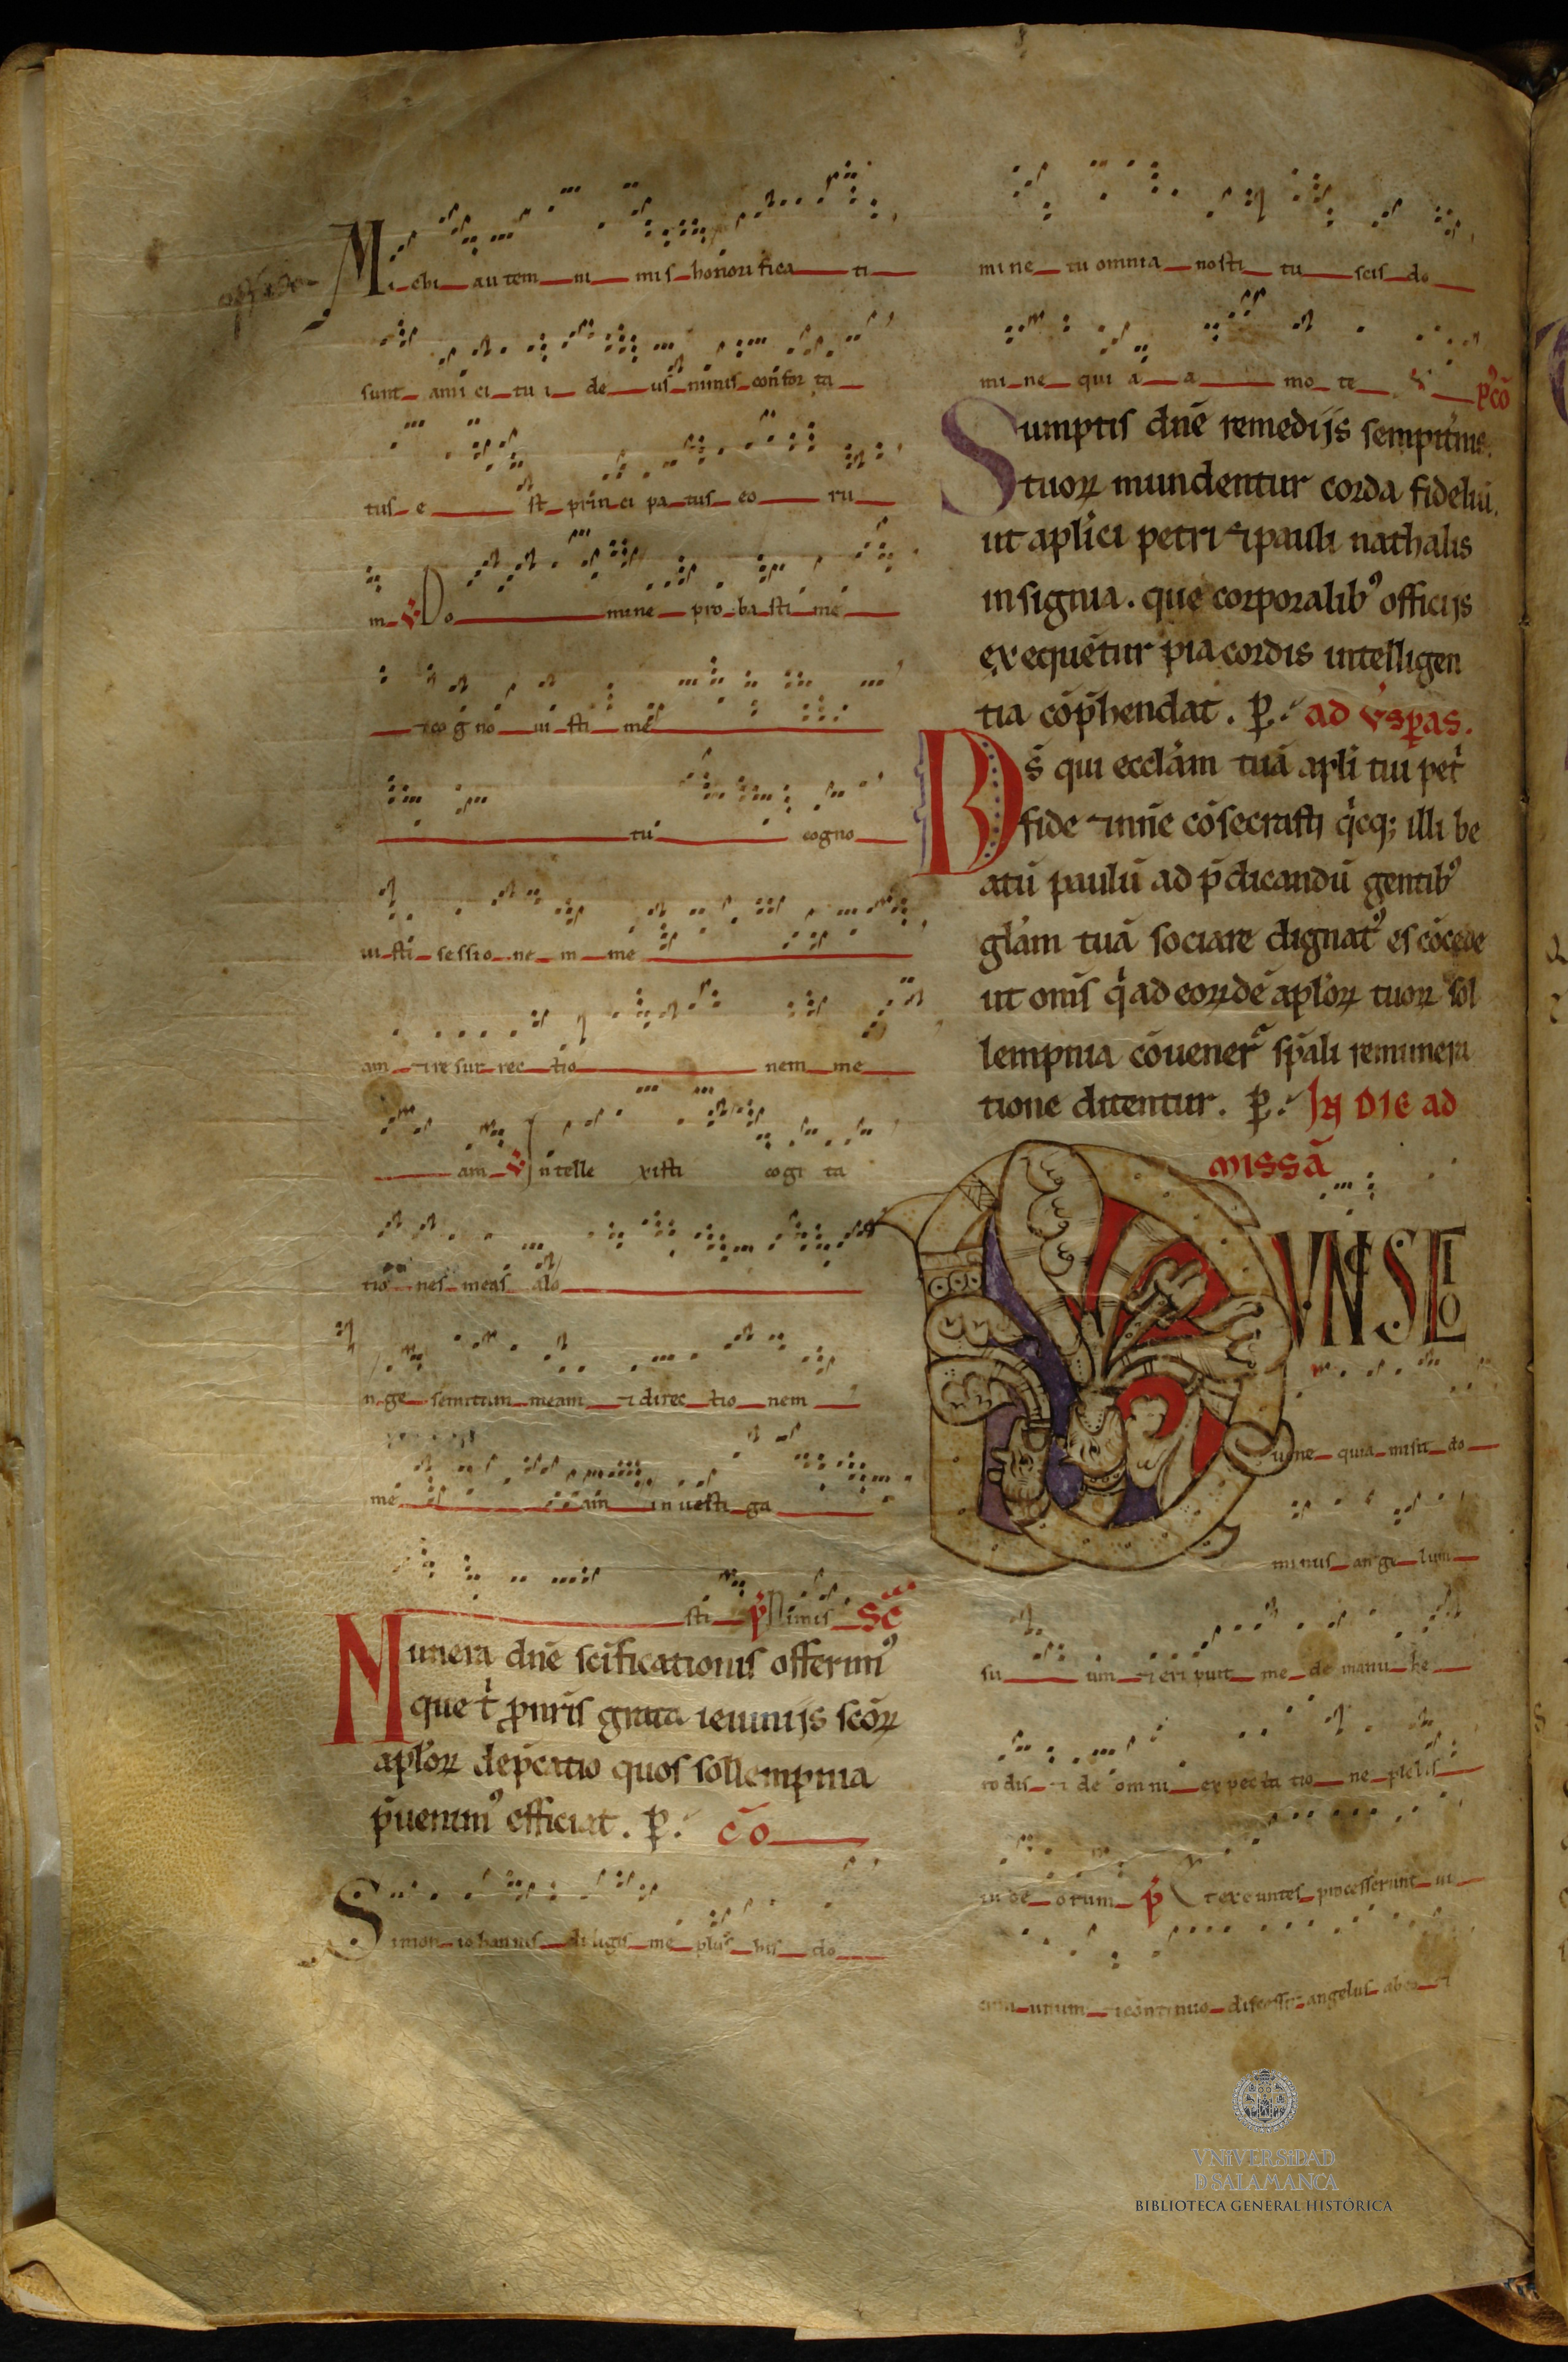 offerenda
Michi autem nimis honorificati
sunt amici tui deus nimis conforta
tus est principatus eoru
m ℣ Domine probasti me
⁊ cogno uisti me
tu cogno
uisti sessionem me
am ⁊ resurrectionem me
am ℣ Intellexisti cogita
tiones meas alo
nge semitam meam ⁊ directionem
meam inuestiga
sti p̄ Nimis Sc̄
Munera dn̄e scīficationis offerimꝰ
que t̾ p̱nr̄is grata ieiunijs scōꝝ
apl'oꝝ dep̄catio quos sollempnia
p̄uenimꝰ efficiat. p̱. cō
Simon iohannis diligis me plus his do
mine tu omnia nosti tu scis do
mine quia amo te pꝰcō
Sumptis dn̄e remedijs sempit̾nis.
tuoꝝ mundentur corda fideliū.
ut apl'ici petri ⁊ pauli nathalis
insignia. que corporalibꝰ officijs
exequētur pia cordis intelligen
tia cōp̄hendat. p̱. ad ūsp̱as.
Ds̄ qui eccl'am tuā apl'i tui pet̾
fide ⁊ nn̄e cōsecrasti q̾cq; illi be
atū paulū ad p̄dicandū gentibꝰ
gl'am tuā sociare dignatꝰ es cōcede
ut om̄s q̾ ad eoꝝdē apl'oꝝ tuoꝝ sol
lempnia cōuener̄ sp̄ali remunera
tione ditentur. p̱. IN DIE ad
missā
NUNC SCIO
uere quia misit do
minus angelum
suum ⁊ eripuit me de manu he
rodis ⁊ de omni expectatione plebis
iudeorum p̄ Et exeuntes processerunt ui
cum unum ⁊ continuo discessit angelus ab eo
VNiVERSiDAD
D SALAMANCA
BIBLIOTECA GENERAL HISTÓRICA